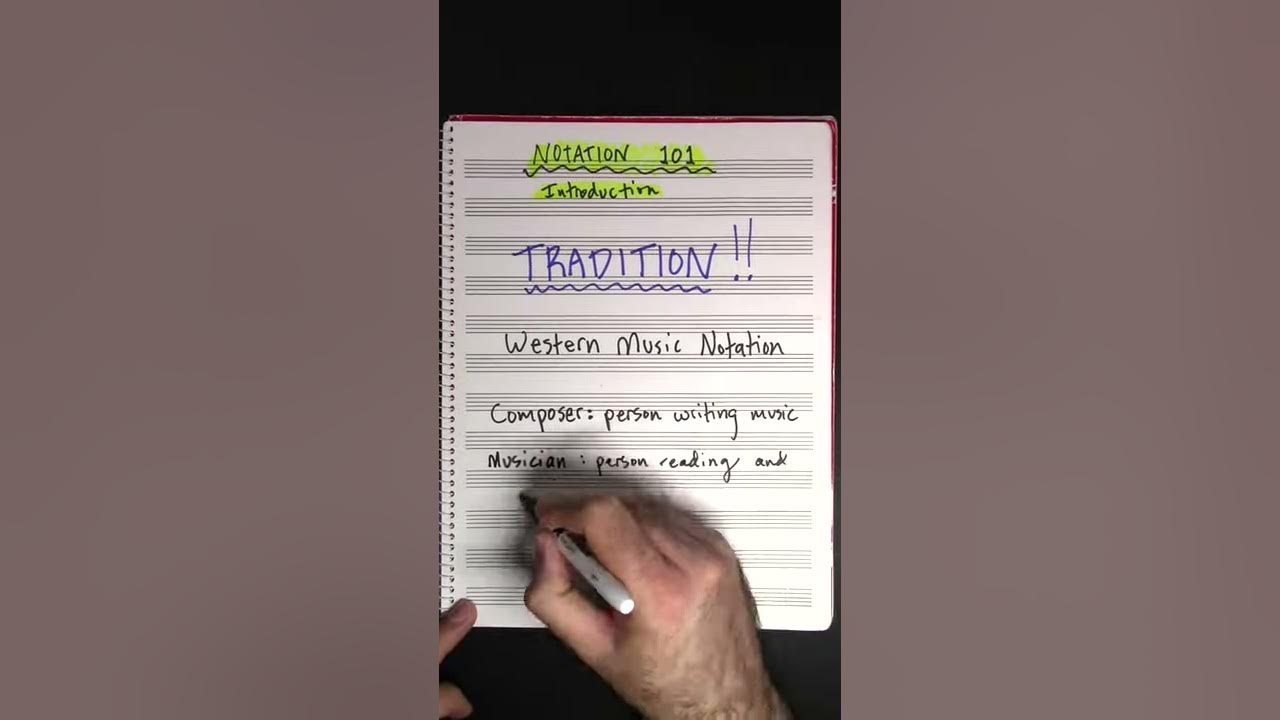 NOTATION 101
Introduction
TRADITION!!
Western Music Notation
Composer: person writing music
Musician: person reading and